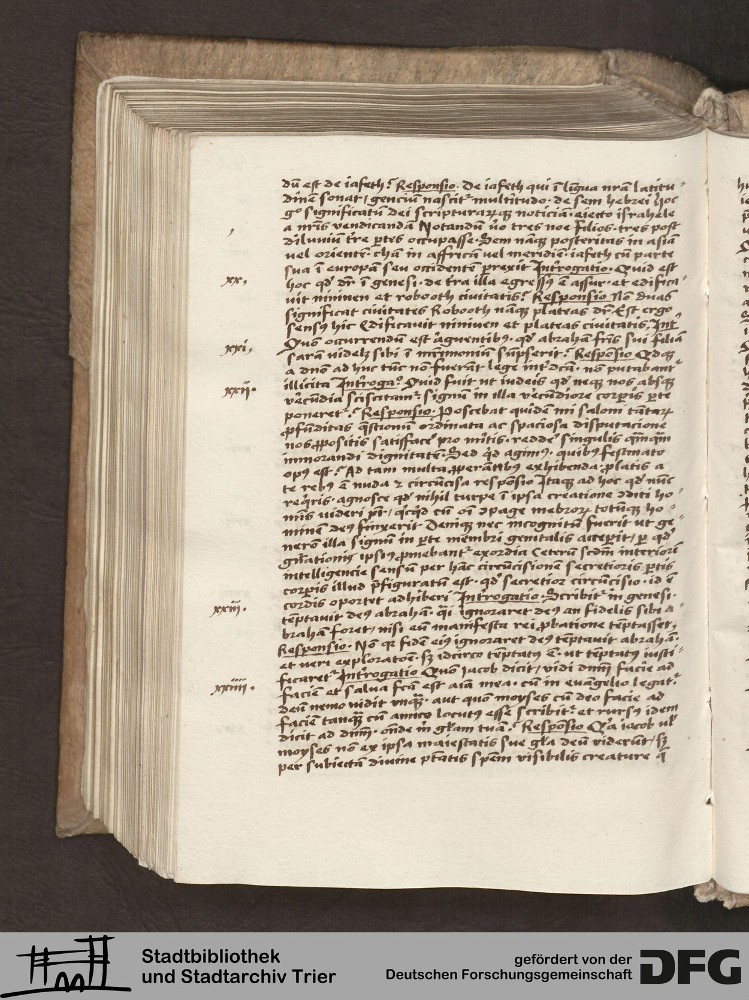 dū est de iafeth? Responsio. De iafeth qui ī līgua nrā latitu-
dinē sonat, genciū nascit multitudo. de sem hebrei
go significatū dei scripturarūq noticiā. eiecto israhele
a nrīs vendicandā Notandū tres noe filios. tres post
diluuiū tre ptes occupasse. Sem nāq posteritas in asiā
vel orientē. chā in affricā vel meridiē. iafeth cū parte
sua ī europā seu occidentē prexit Introgatio. Quid est
xx.
hoc qd dr ī genesi. de tra illa egressꝰ ē assur. et edifica-
uit niniuen et robooth ciuitatis? Responsio Nō duas
significat ciuitates Robooth nāq plateas dr. Est ergo
sensꝰ hic Edificauit niniuen et plateas ciuitatis. Int
xxi.
Quō occurrendū est arguentibꝰ. qd abrahā fris sui filiā
sarā videlꝫ sibi ī mrimoniū supserit? Responsio
a dno ad huc tūc nō fuerāt lege int dcā. nō putabant
xxii.
illicita Introga Quid fuit ut iudeis qd neqꝫ nos absqꝫ
vecūdia sciscitam signū in illa vecūdiore corpis pte
poneret? Responsio. Poscebat quidē mi saloni tātarꝫ
pfūditas qstionū ordinata ac spaciosa disputacione
nos ppositis satisface pro mitis. redde singulis qmqm
immorandi dignitatē. Sed qd agimꝰ. quibꝰ festinato
opꝰ est? Ad tam multa pperātibꝰ exhibenda. platis a
te rebꝰ ē nuda et circūcisa respōsio Itaqꝫ ad hoc qd nūc
reqris. agnosce qd nihil turpe ī ipsa creatione dditi ho-
mīs videri pt, qcqd cū oī page mebrorꝫ totūqꝫ ho-
minē deꝰ finxerit Deniqꝫ nec incognitū fuerit ut ge-
neris illa signū in pte membri genitalis acceperit, p qd
gnationis ipsiꝰ pmebant exordia Ceterū scdm interiorē
intelligencie sensū per hāc circūcisionē secretioris ptis
corpis illud pfiguratū est. qd secretior circūcisio. id ē
cordis oportet adhiberi Introgatio. Scribit in genesi.
xxiii.
tēptauit deꝰ abrahā. qi ignoraret deꝰ an fidelis sibi a-
brahā foret, nisi eū manifesta rei pbatione tēptasset,
Responsio. Nō qr fidē eiꝰ ignoraret deꝰ tēptauit abrahā.
et veri exploratorē. sꝫ idcirco tēptatꝰ ē. ut tēptatꝰ iusti-
ficaret Introgatio Quō iacob dicit, vidi dnm facie ad
xxiiii.
faciē et salua fcā est aīa mea. cū in euāgelio legat.
deū nemo vidit vnqꝫ. aut quō moyses cū deo facie ad
faciē tanqꝫ cū amico locutꝰ esse scribit. et rursꝰ idem
dicit ad dnm. onde m glam tuā? Responsio Qa iacob ul
moyses nō ex ipsa maiestatis sue gla deū viderūt, sꝫ
per subiectā diuine ptatis spem visibilis creature q
Stadtbibliothek
und Stadtarchiv Trier
gefördert von der
Deutschen Forschungsgemeinschaft
DFG